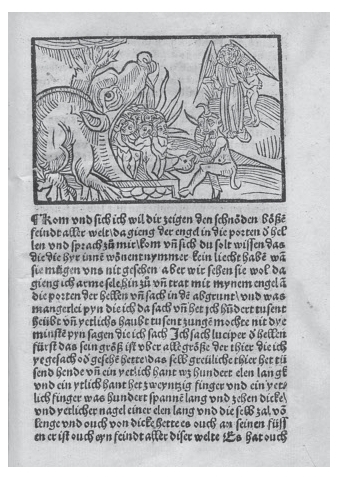 ¶ Kom vnd sich ich wil dir zeigen den schnöden bößē
feindt aller welt/ da gieng der engel in die porten d̓ hel
len vnd sprach zů mir/ kom vn̄ sich du solt wissen das
die die hyr inne wonent nymmer kein liecht habē wā
sie mögen vns nit gesehen aber wir sehen sie wol da
gieng ich armeselē hin zů vn̄ trat mit mynem engel ā
die porten der hellen vn̄ sach in dē abgrunt/ vnd was
mangerlei pyn die ich da sach vn̄ het ich hūdert tusent
heübt vn̄ yetlichs haubt tusent zungē mochte nit dye
minste pyn sagen die ich da sach Jch sach luciper d̓ hellen
fürst das sein größ ist vber alle größe der thier die ich
ye gesach od̓ gesehē hette/ das selb greüliche thier het tu
send hende vn̄ ein yetlich hant wz hundert elen langk
vnd ein ytlich hant het zweyntzig finger vnd ein yet
lich finger was hundert spannē lang vnd zehen dicke/
vnd yetlicher nagel einer elen lang vnd die selb zal vō
lenge vnd ouch von dicke hette es ouch an seinen füss
en er ist ouch eyn feindt aller diser welte Es hat ouch